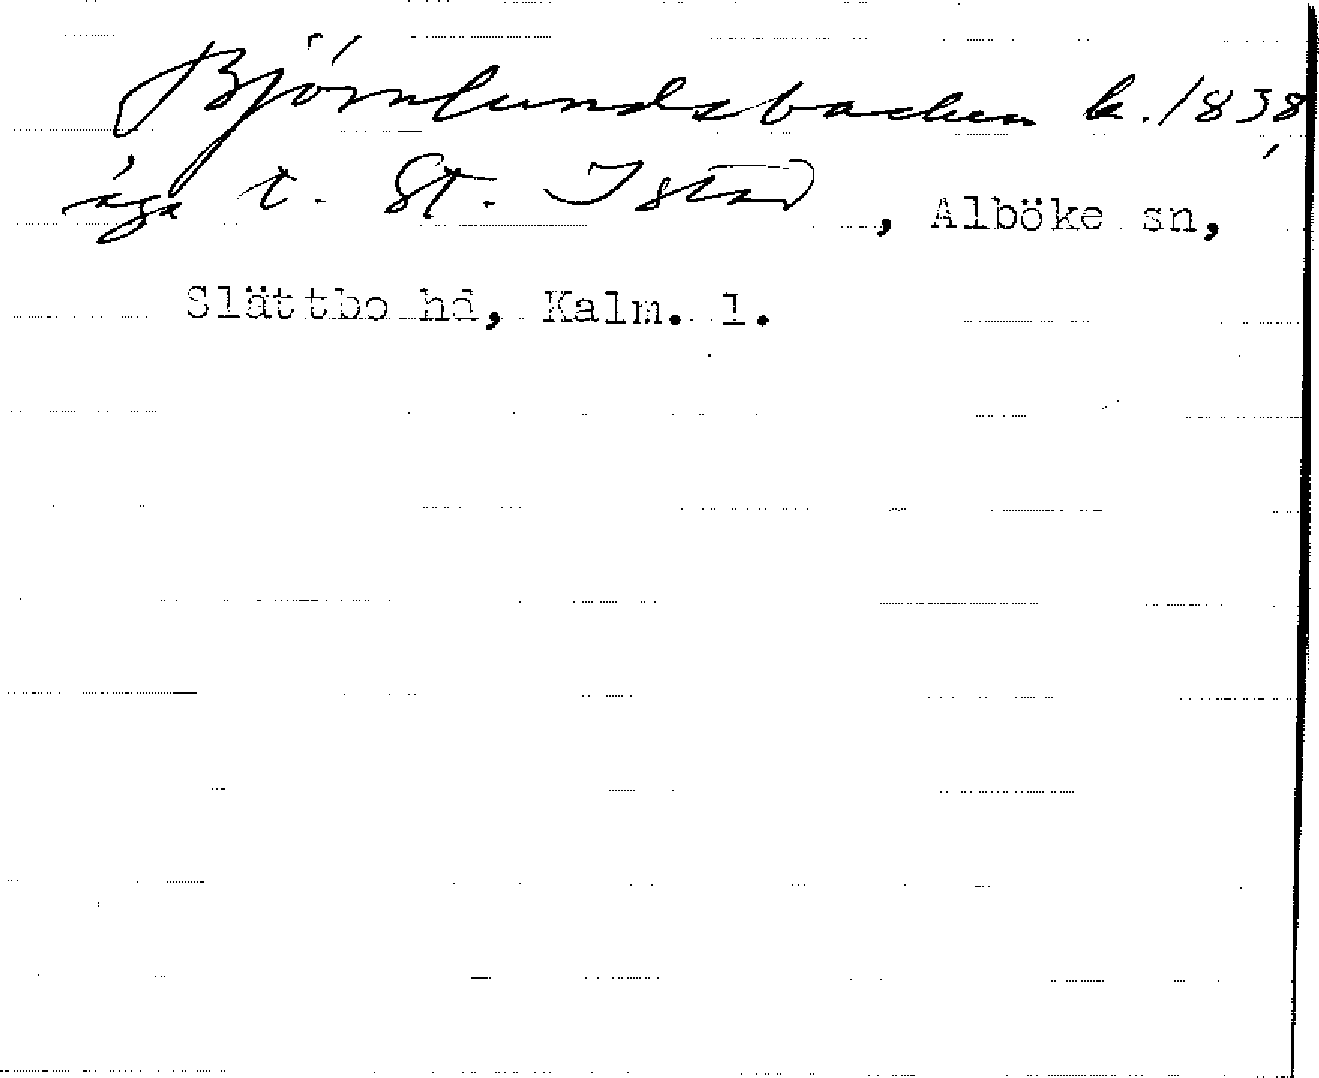 Björnlundsbacken k. 1838,
äga t. St. Istad, Alböke sn,
Slättbo hd, Kalm. l.